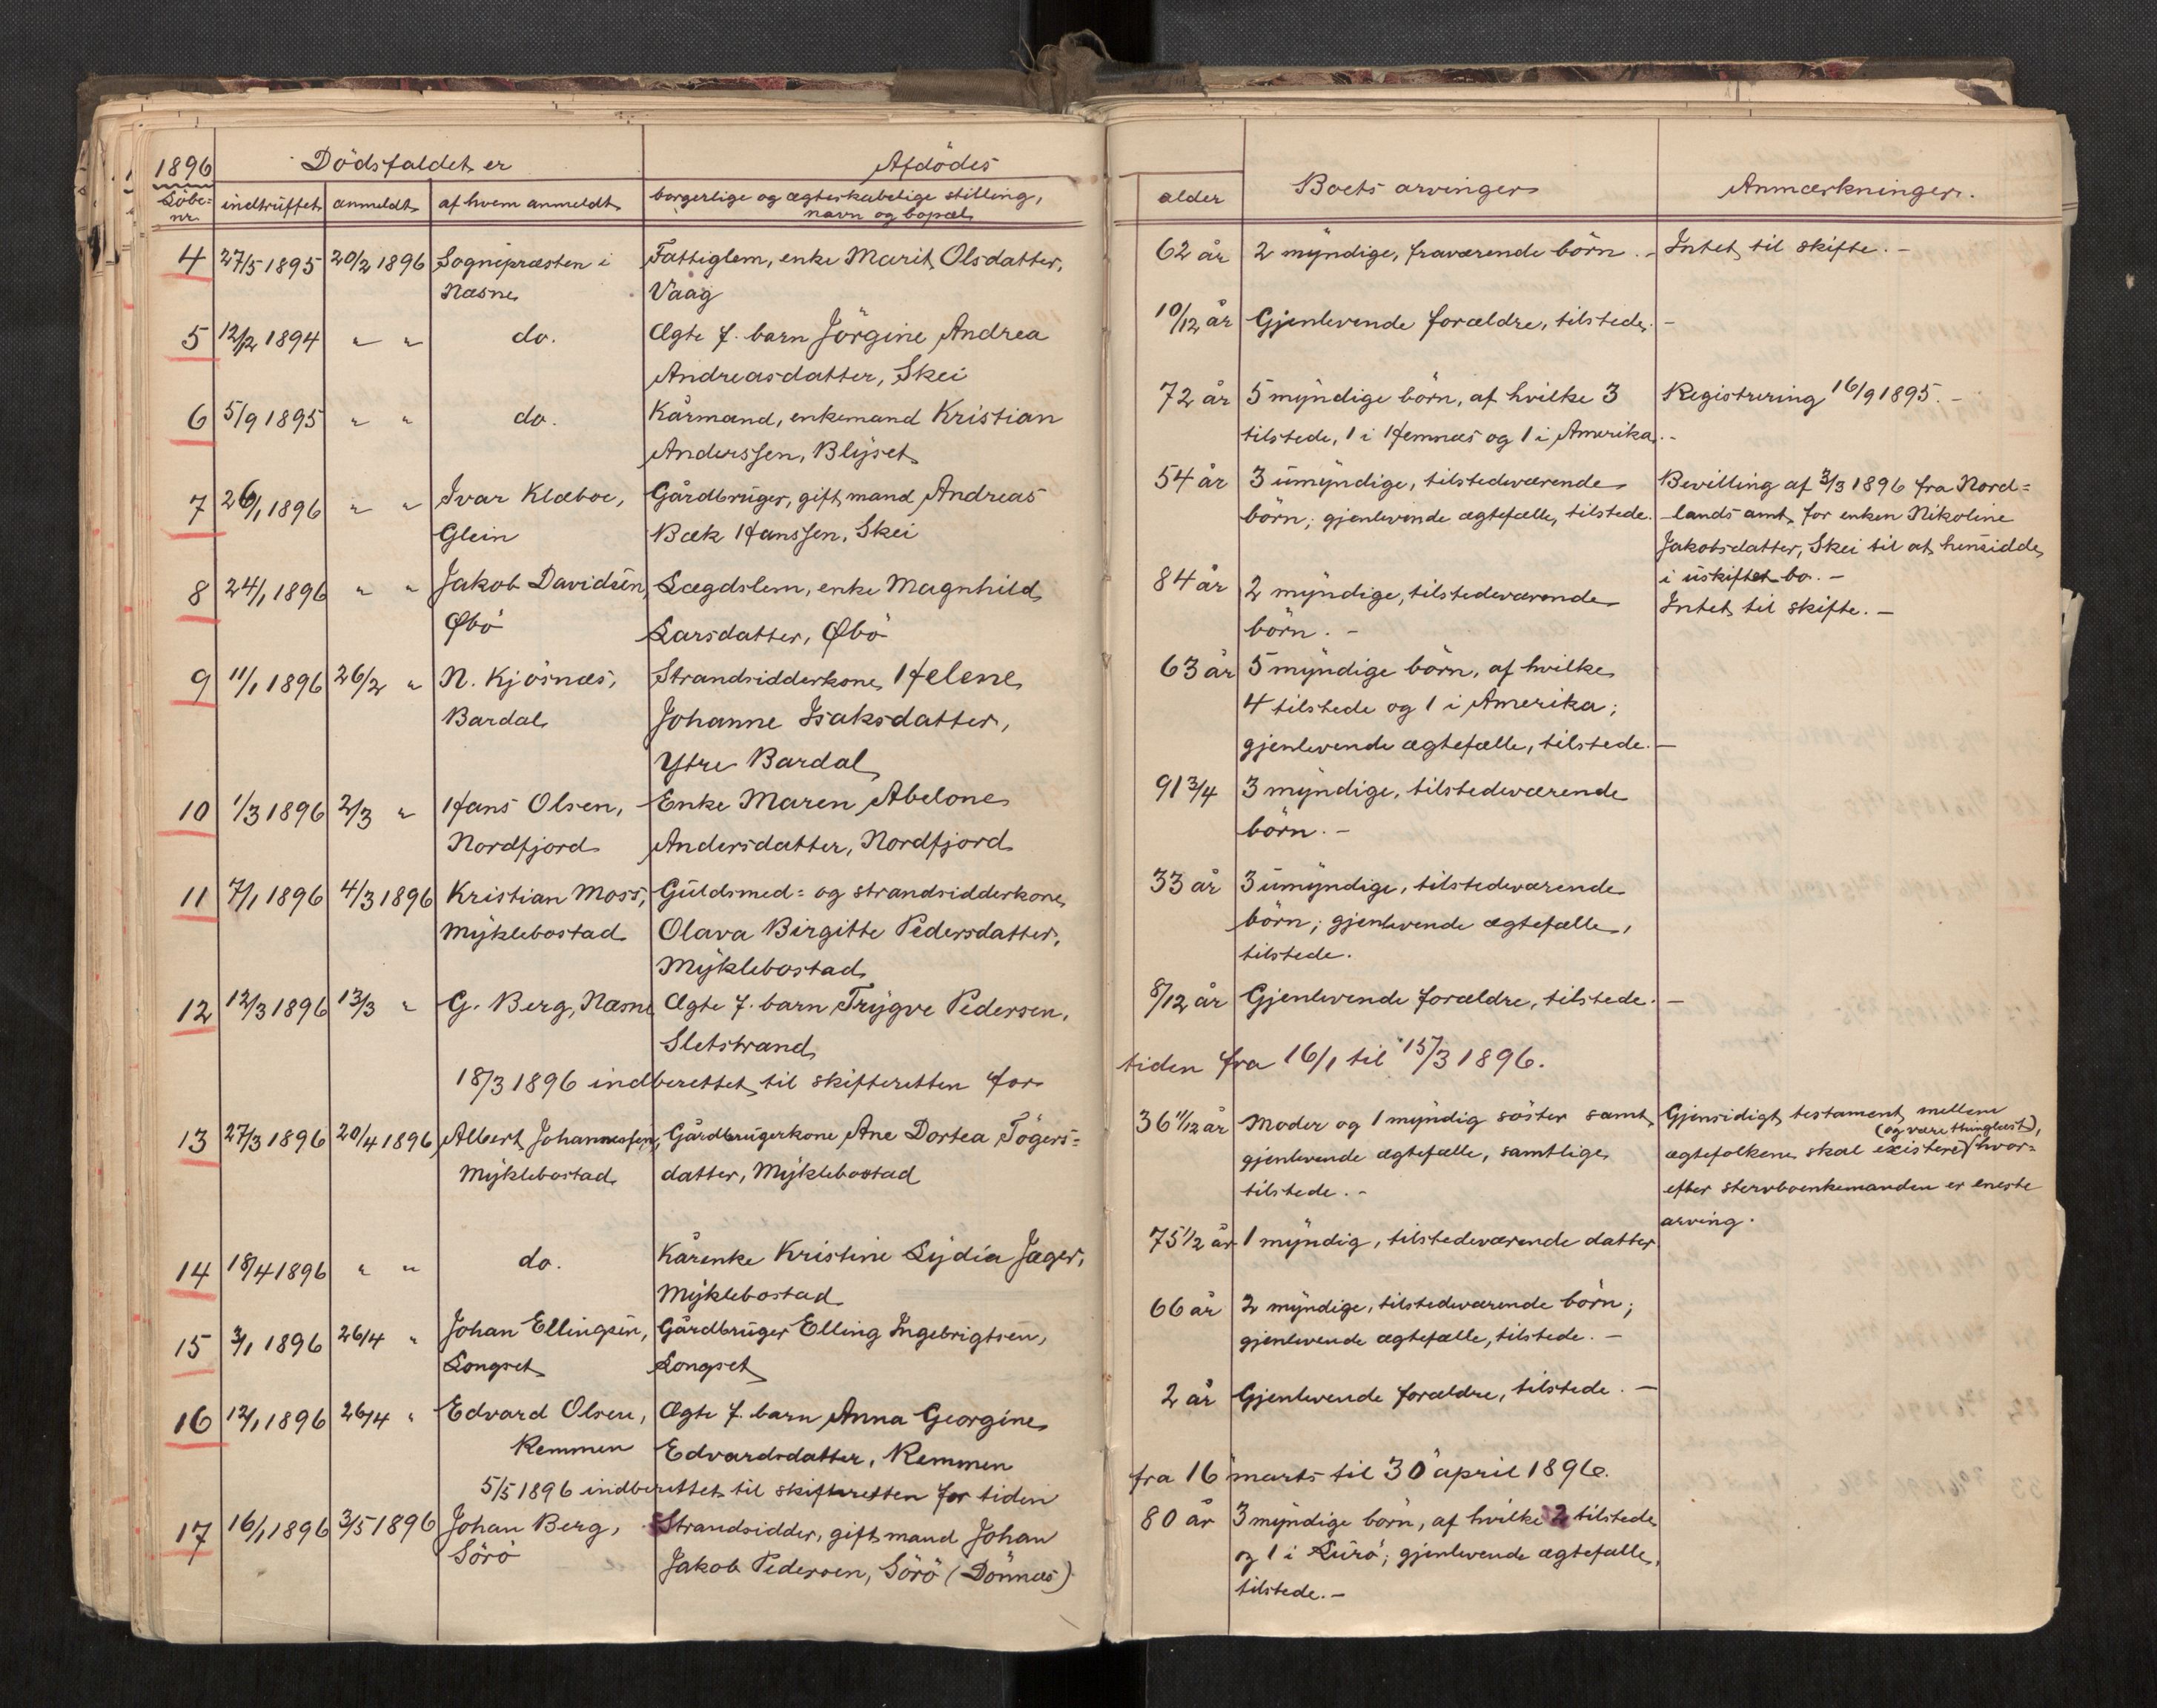 1896
Dödsfaldet er
Afdödes
Löbe=
nr.
indtruffet
anmeldt
af hvem anmeldt
borgerlige og ægteskabelige stilling,
navn og bopæl
alder
Boets arvinger
Anmærkninger.
4 27/5 1895 20/2 1896 Sognepræsten i Fattiglem, enke Marit Olsdatter, 62 år 2 myndige, fraværende börn. - Intet til skifte. -
Næsne Vaag
5 12/12 1894 " " do. Ægte f. barn Jörgine Andrea 10/12 år Gjenlevende forældre, tilstede. -
Andreasdatter, Skei
6 5/9 1895 " " do. Kårmand, enkemand Kristian 72 år 5 myndige börn, af hvilke 3 Registrering 16/9 1895. -
Anderssen, Blyset tilstede, 1 i Hemnæs og 1 i Amerika. -
7 26/1 1896 " " Ivar Klæboe, Gårdbruger, gift mand Andreas 54 år 3 umyndige, tilstedeværende Bevilling af 3/3 1896 fra Nord=
Glein Bæk Hanssen, Skei börn; gjenlevende ægtefælle, tilstede. - lands amt for enken Nikoline
Jakobsdatter, Skei til at hensidde
i uskiftet bo. -
8 24/1 1896 " " Jakob Davidsen, Lægdslem, enke Magnhild 84 år 2 myndige, tilstedeværende Intet til skifte. -
Øbö Larsdatter, Øbö börn. -
9 11/1 1896 26/2 " N. Kjösnæs, Strandsidderkone Helene 63 år 5 myndige börn, af hvilke
Bardal Johanne Isaksdatter, 4 tilstede og 1 i Amerika;
Ytre Bardal gjenlevende ægtefælle, tilstede. -
10 1/3 1896 2/3 " Hans Olsen, Enke Maren Abelone 91 3/4 3 myndige, tilstedeværende
Nordfjord Andersdatter, Nordfjord börn. -
11 7/1 1896 4/3 1896 Kristian Moss, Guldsmed= og strandsidderkone 33 år 3 umyndige, tilstedeværende
Myklebostad Olava Birgitte Pedersdatter, börn; gjenlevende ægtefælle,
Myklebostad tilstede.
12 12/3 1896 13/3 " G. Berg, Næsne Ægte f. barn Trygve Pedersen, 8/12 år Gjenlevende forældre, tilstede. -
Sletstrand
18/3 1896 indberettet til skifteretten for tiden fra 16/1 til 15/3 1896.
13 27/3 1896 20/4 1896 Albert Johannessen, Gårdbrugerkone Ane Dortea Tögers= 36 11/12 år Moder og 1 myndig söster samt Gjensidigt testament mellem
Myklebostad datter, Myklebostad gjenlevende ægtefælle, samtlige ægtefolkene skal existere (og være thinglæst), hvor=
tilstede. - efter stervboenkemanden er eneste
arving.
14 18/4 1896 " " do. Kårenke Kristine Lydia Jæger, 75 1/2 år 1 myndig, tilstedeværende datter
Myklebostad
15 3/1 1896 26/4 " Johan Ellingsen, Gårdbruger Elling Ingebrigtsen, 66 år 2 myndige, tilstedeværende börn;
Longset Longset gjenlevende ægtefælle, tilstede. -
16 12/1 1896 26/4 " Edvard Olsen, Ægte f. barn Anna Georgine 2 år Gjenlevende forældre, tilstede. -
Remmen Edvardsdatter, Remmen
5/5 1896 indberettet til skifteretten for tiden fra 16 marts til 30 april 1896.
17 16/1 1896 3/5 1896 Johan Berg, Strandsidder, gift mand Johan 80 år 3 myndige börn, af hvilke 2 tilstede
Sörö Jakob Pedersen, Sörö (Dönnæs) og 1 i Lurö; gjenlevende ægtefælle,
tilstede. -